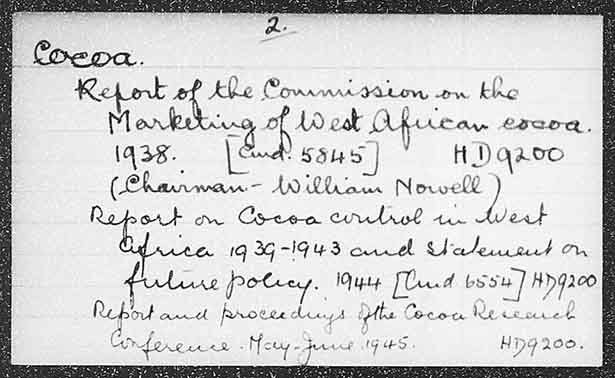 2.
Cocoa.
Report of the Commission on the
Marketing of West African cocoa.
1938. [Cmd. 5845] HD9200
(Chairman - William Nowell)
Report on Cocoa control in West
Africa 1939-1943 and statement on
future policy. 1944 [Cmd 6554] HD9200
Report and proceedings of the Cocoa Research
Conference. May-June 1945. HD9200.